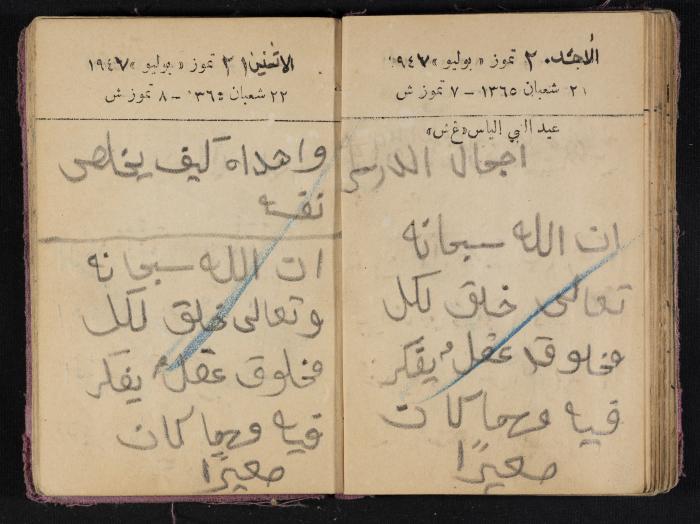 الأحد ٢٠ تموز «يوليو» ١٩٤٧
٢١ شعبان ١٣٦٥ – ٧ تموز ش
عيد النبي الياس «غ ش»
اجمال الدرس
ان الله سبحانه
تعالى خلق لكل
مخلوق عقل يفكر
فيه ومهما كان
صغيرًا
الاثنين ٢١ تموز «يوليو» ١٩٤٧
٢٢ شعبان ١٣٦٥ – ٨ تموز ش
واهداه كيف يخلص
نفسه
ان الله سبحانه
وتعالى خلق لكل
مخلوق عقل يفكر
فيه ومهما كان
صغيرًا